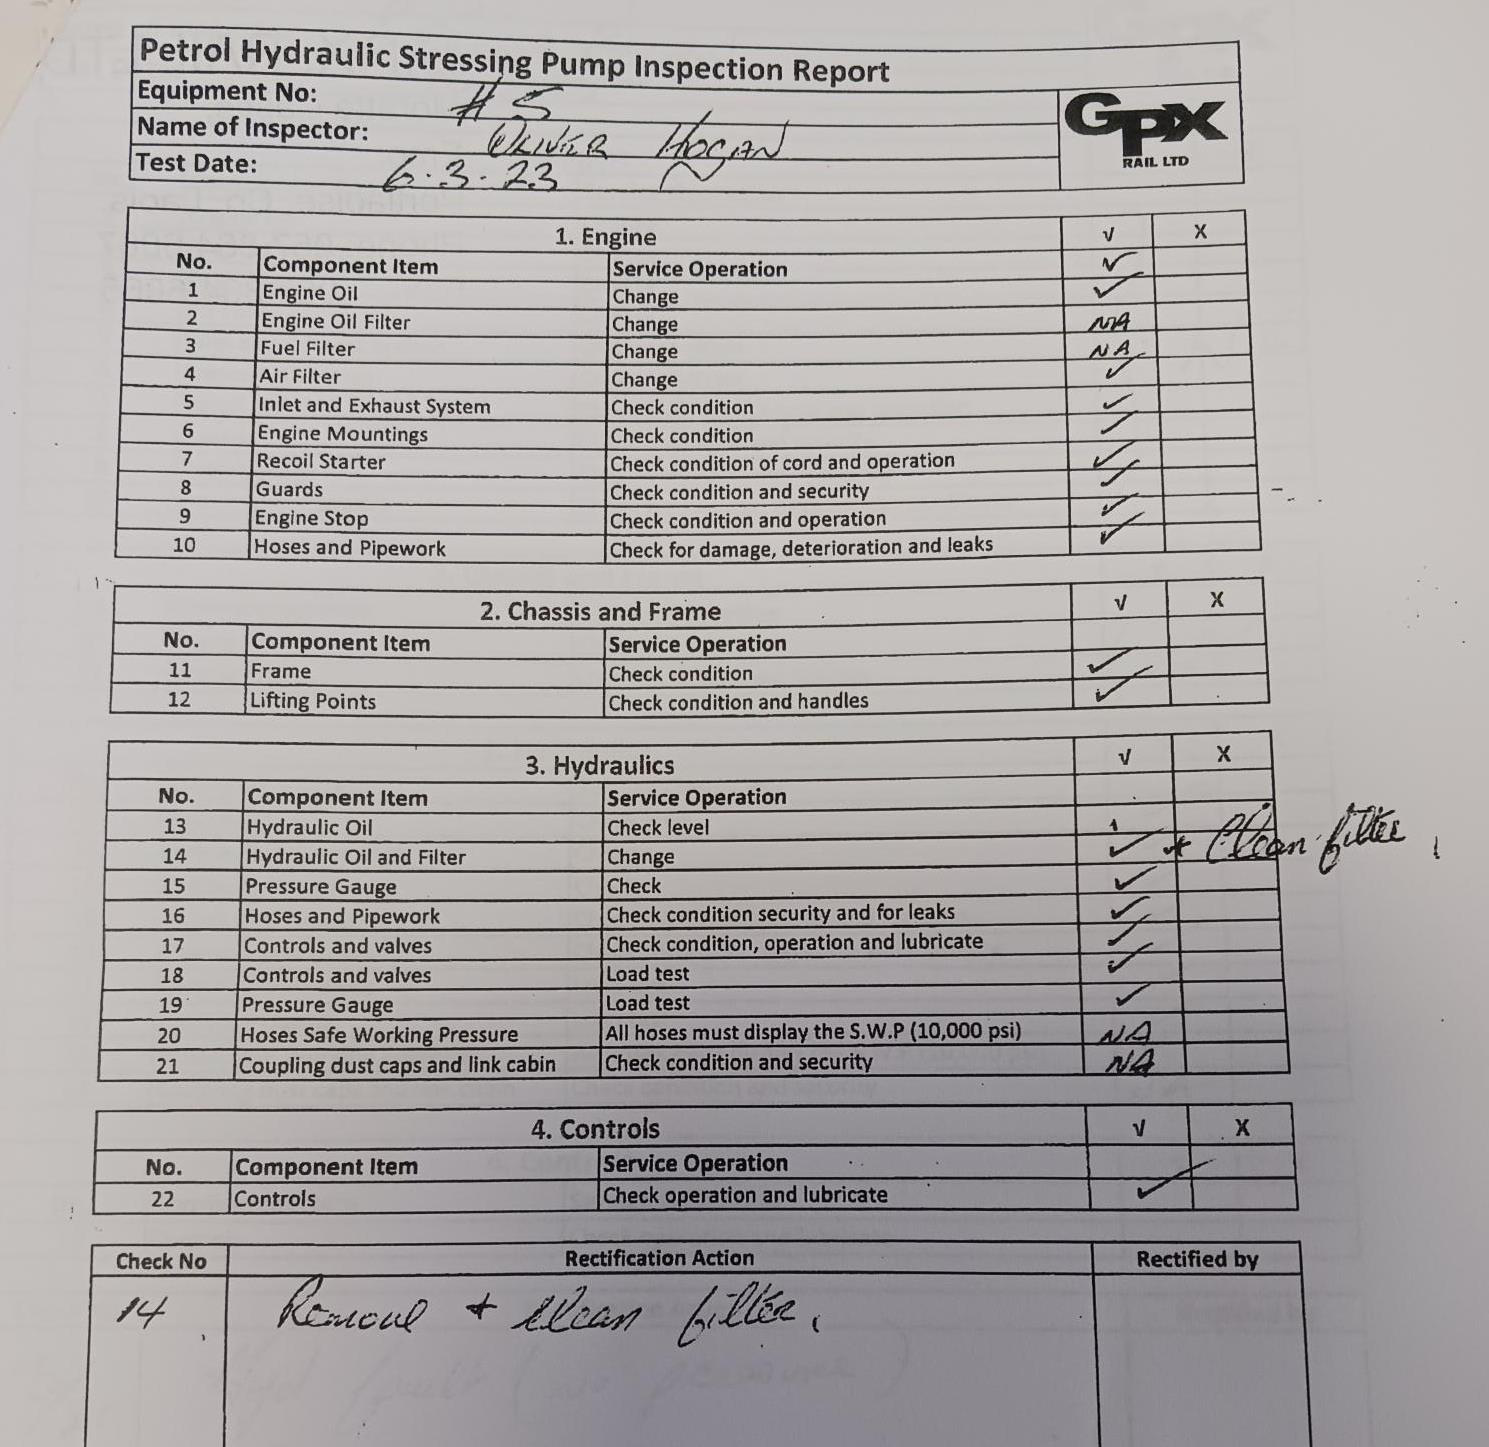 Petrol Hydraulic Stressing Pump Inspection Report
Equipment No: # 5
Name of Inspector: OLIVER HOGAN
Test Date: 6.3.23
GPX
RAIL LTD
1. Engine √ X
No. Component Item Service Operation ✓
1 Engine Oil Change ✓
2 Engine Oil Filter Change NA
3 Fuel Filter Change NA
4 Air Filter Change ✓
5 Inlet and Exhaust System Check condition ✓
6 Engine Mountings Check condition ✓
7 Recoil Starter Check condition of cord and operation ✓
8 Guards Check condition and security ✓
9 Engine Stop Check condition and operation ✓
10 Hoses and Pipework Check for damage, deterioration and leaks ✓
2. Chassis and Frame √ X
No. Component Item Service Operation
11 Frame Check condition ✓
12 Lifting Points Check condition and handles ✓
3. Hydraulics √ X
No. Component Item Service Operation
13 Hydraulic Oil Check level
14 Hydraulic Oil and Filter Change ✓ * Clean filter.
15 Pressure Gauge Check ✓
16 Hoses and Pipework Check condition security and for leaks ✓
17 Controls and valves Check condition, operation and lubricate ✓
18 Controls and valves Load test ✓
19 Pressure Gauge Load test ✓
20 Hoses Safe Working Pressure All hoses must display the S.W.P (10,000 psi) NA
21 Coupling dust caps and link cabin Check condition and security NA
4. Controls √ X
No. Component Item Service Operation
22 Controls Check operation and lubricate ✓
Check No Rectification Action Rectified by
14 Remove + clean filter.